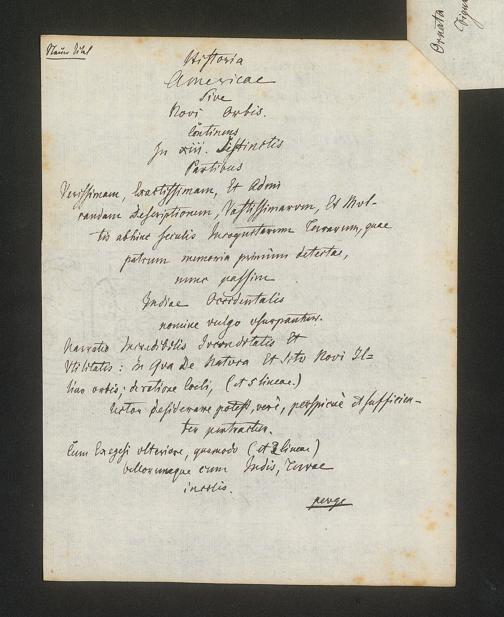 Ornata
Figur
Historia
Americae
Sive
Novi Orbis.
Continens
In xiii. Distinctis
Partibus
Verissimam, Exactissimam, Et Admi
randam Descriptionem, Vastissimarum, Et Mul-
tis abhinc seculis Incognitarum Terrarum, quae
patrum memoria primùm detectae,
nunc passim
Indiae Occidentalis
nomine vulgo usurpantur.
Narratio Incredibilis Iucunditatis Et
Utilitatis: In Qua De Natura Et Situ Novi Il-
lius orbis; de ratione Coeli, (et 5 lineae.)
Lector desiderare potest, verè, perspicuè et sufficien-
ter pertractur.
Cum Exegesi ulteriore, quomodo (et 2 lineae)
bellorumque cum Indis, Terrae
incolis.
perge